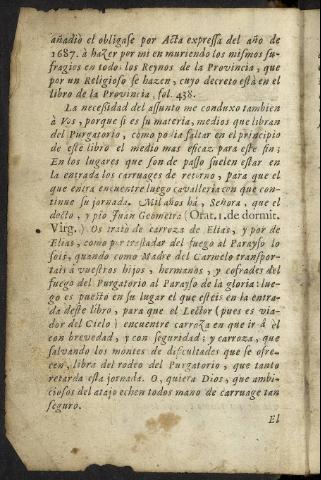 añadio el obligase por Acta expressa del año de
1687. à hazer por mi en muriendo los mismos su-
fragios en todos los Reynos de la Provincia, que
por un Religioso se hazen, cuyo decreto está en el
libro de la Provincia, fol. 438.
La necesidad del assunto me conduxo tambien
à Vos, porque si es su materia, medios que libran
del Purgatorio, como podia faltar en el principio
de este libro el medio mas eficaz para este fin;
En los lugares que son de passo suelen estar en
la entrada los carruages de retorno, para que el
que entra encuentre luego cavalleria con que con-
tinue su jornada. Mil años há, Señora, que el
docto, y pio Juan Geometra (Orat. 1. de dormit.
Virg.) Os trató de carroza de Elias, y por de
Elias, como por trasladar del fuego al Parayso lo
sois, quando como Madre del Carmelo transpor-
tais à vuestros hijos, hermanos, y cofrades del
fuego del Purgatorio al Parayso de la gloria: lue-
go es puesto en su lugar el que esteis en la entra-
da deste libro, para que el Lector (pues es via-
dor del Cielo) encuentre carroza en que ir à èl
con brevedad, y con seguridad; y carroza, que
salvando los montes de dificultades que se ofre-
cen, libra del rodeo del Purgatorio, que tanto
retarda esta jornada. O, quiera Dios, que ambi-
ciosos del atajo echen todos mano de carruage tan
seguro.
El